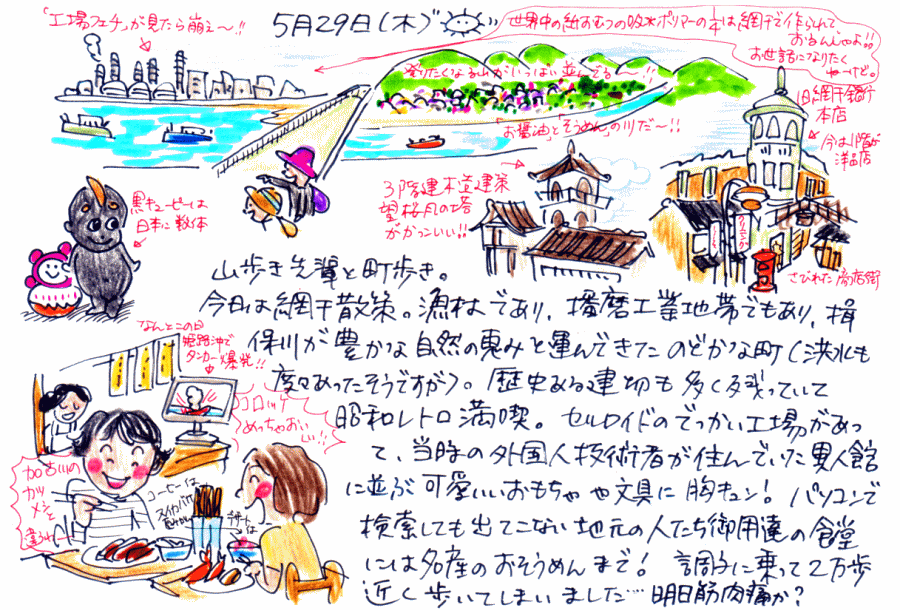 「工場フェチ」が見たら崩え〜!!
5月29日(木)
世界中の紙おむつの吸水ポリマーの1/4は網干で作られて
おるんじゃよ!!
お世話になりたく
ねーけど。
登りたくなる山がいっぱい並んでる〜!!
旧網干銀行
本店
今は1階が
洋品店
「お醤油とそうめん」の川だ〜!!
3階建木造建築
望桜風の塔
がかっこいい!!
黒キューピーは
日本に数体
さびれた商店街
山歩き先輩と町歩き。
今日は網干散策。漁村であり、播磨工業地帯でもあり、揖
保川が豊かな自然の恵みを運んできたのどかな町(洪水も
度々あったそうですが)。歴史ある建物も多く残っていて
昭和レトロ満喫。セルロイドのでっかい工場があっ
て、当時の外国人技術者が住んでいた異人館
に並ぶ可愛いいおもちゃや文具に胸キュン!パソコンで
検索しても出てこない地元の人たち御用達の食堂
には名産のおそうめんまで!調子に乗って2万歩
近く歩いてしまいました…明日筋肉痛か?
なんとこの日
姫路沖で
タンカー爆発!!
コロッケ
めっちゃおい
しい!!
加古川の
カツ
メシと
違うわ〜
コーヒーは
デザートは